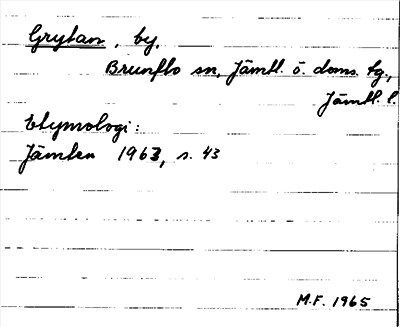 Grytan, by,
Brunflo sn, Jämtl. ö. doms. tg.,
Jämtl. l.
Etymologi:
Jämten 1963, s. 43
M.F. 1965